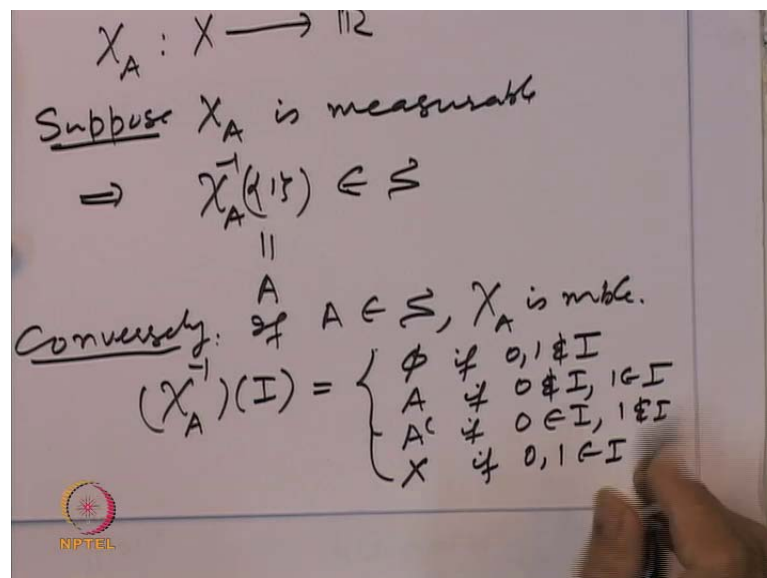 χ_A : X ⟶ ℝ
Suppose χ_A is measurable
⇒ χ_A^{-1}({1}) ∈ S
||
A
Conversely: If A ∈ S, χ_A is mble.
(χ_A^{-1})(I) = { ϕ if 0,1 ∉ I
A if 0 ∉ I, 1 ∈ I
A^c if 0 ∈ I, 1 ∉ I
X if 0,1 ∈ I
NPTEL